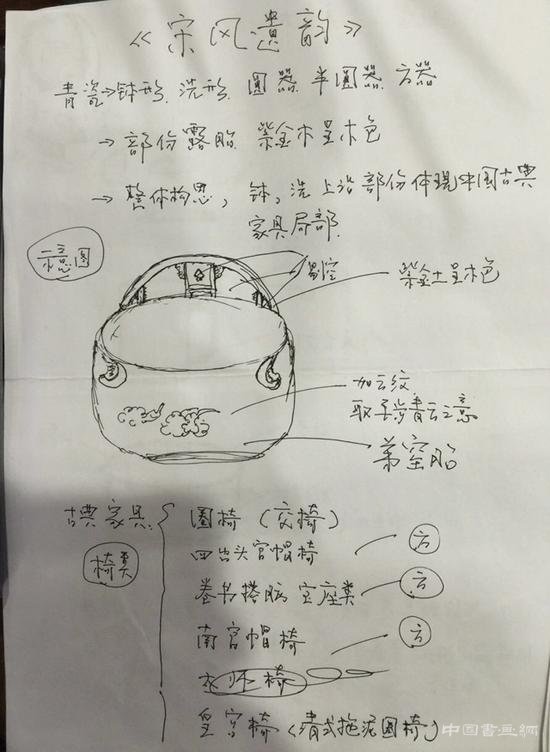 《宋风遗韵》
青瓷→钵形.洗形 圆器 半圆器 方器
→ 部份露胎 紫金木呈木色
→ 整体构思,钵,洗上沿部份体现中国古典
家具局部.
示意图
剔空
紫金土呈木色
加云纹
取平步青云之意
弟窑胎
古典家具.
椅类
圈椅(交椅)
四出头官帽椅
方
卷书搭脑宝座类
方
南官帽椅
方
椅
皇宫椅(清式拖泥圈椅)
中国書画網